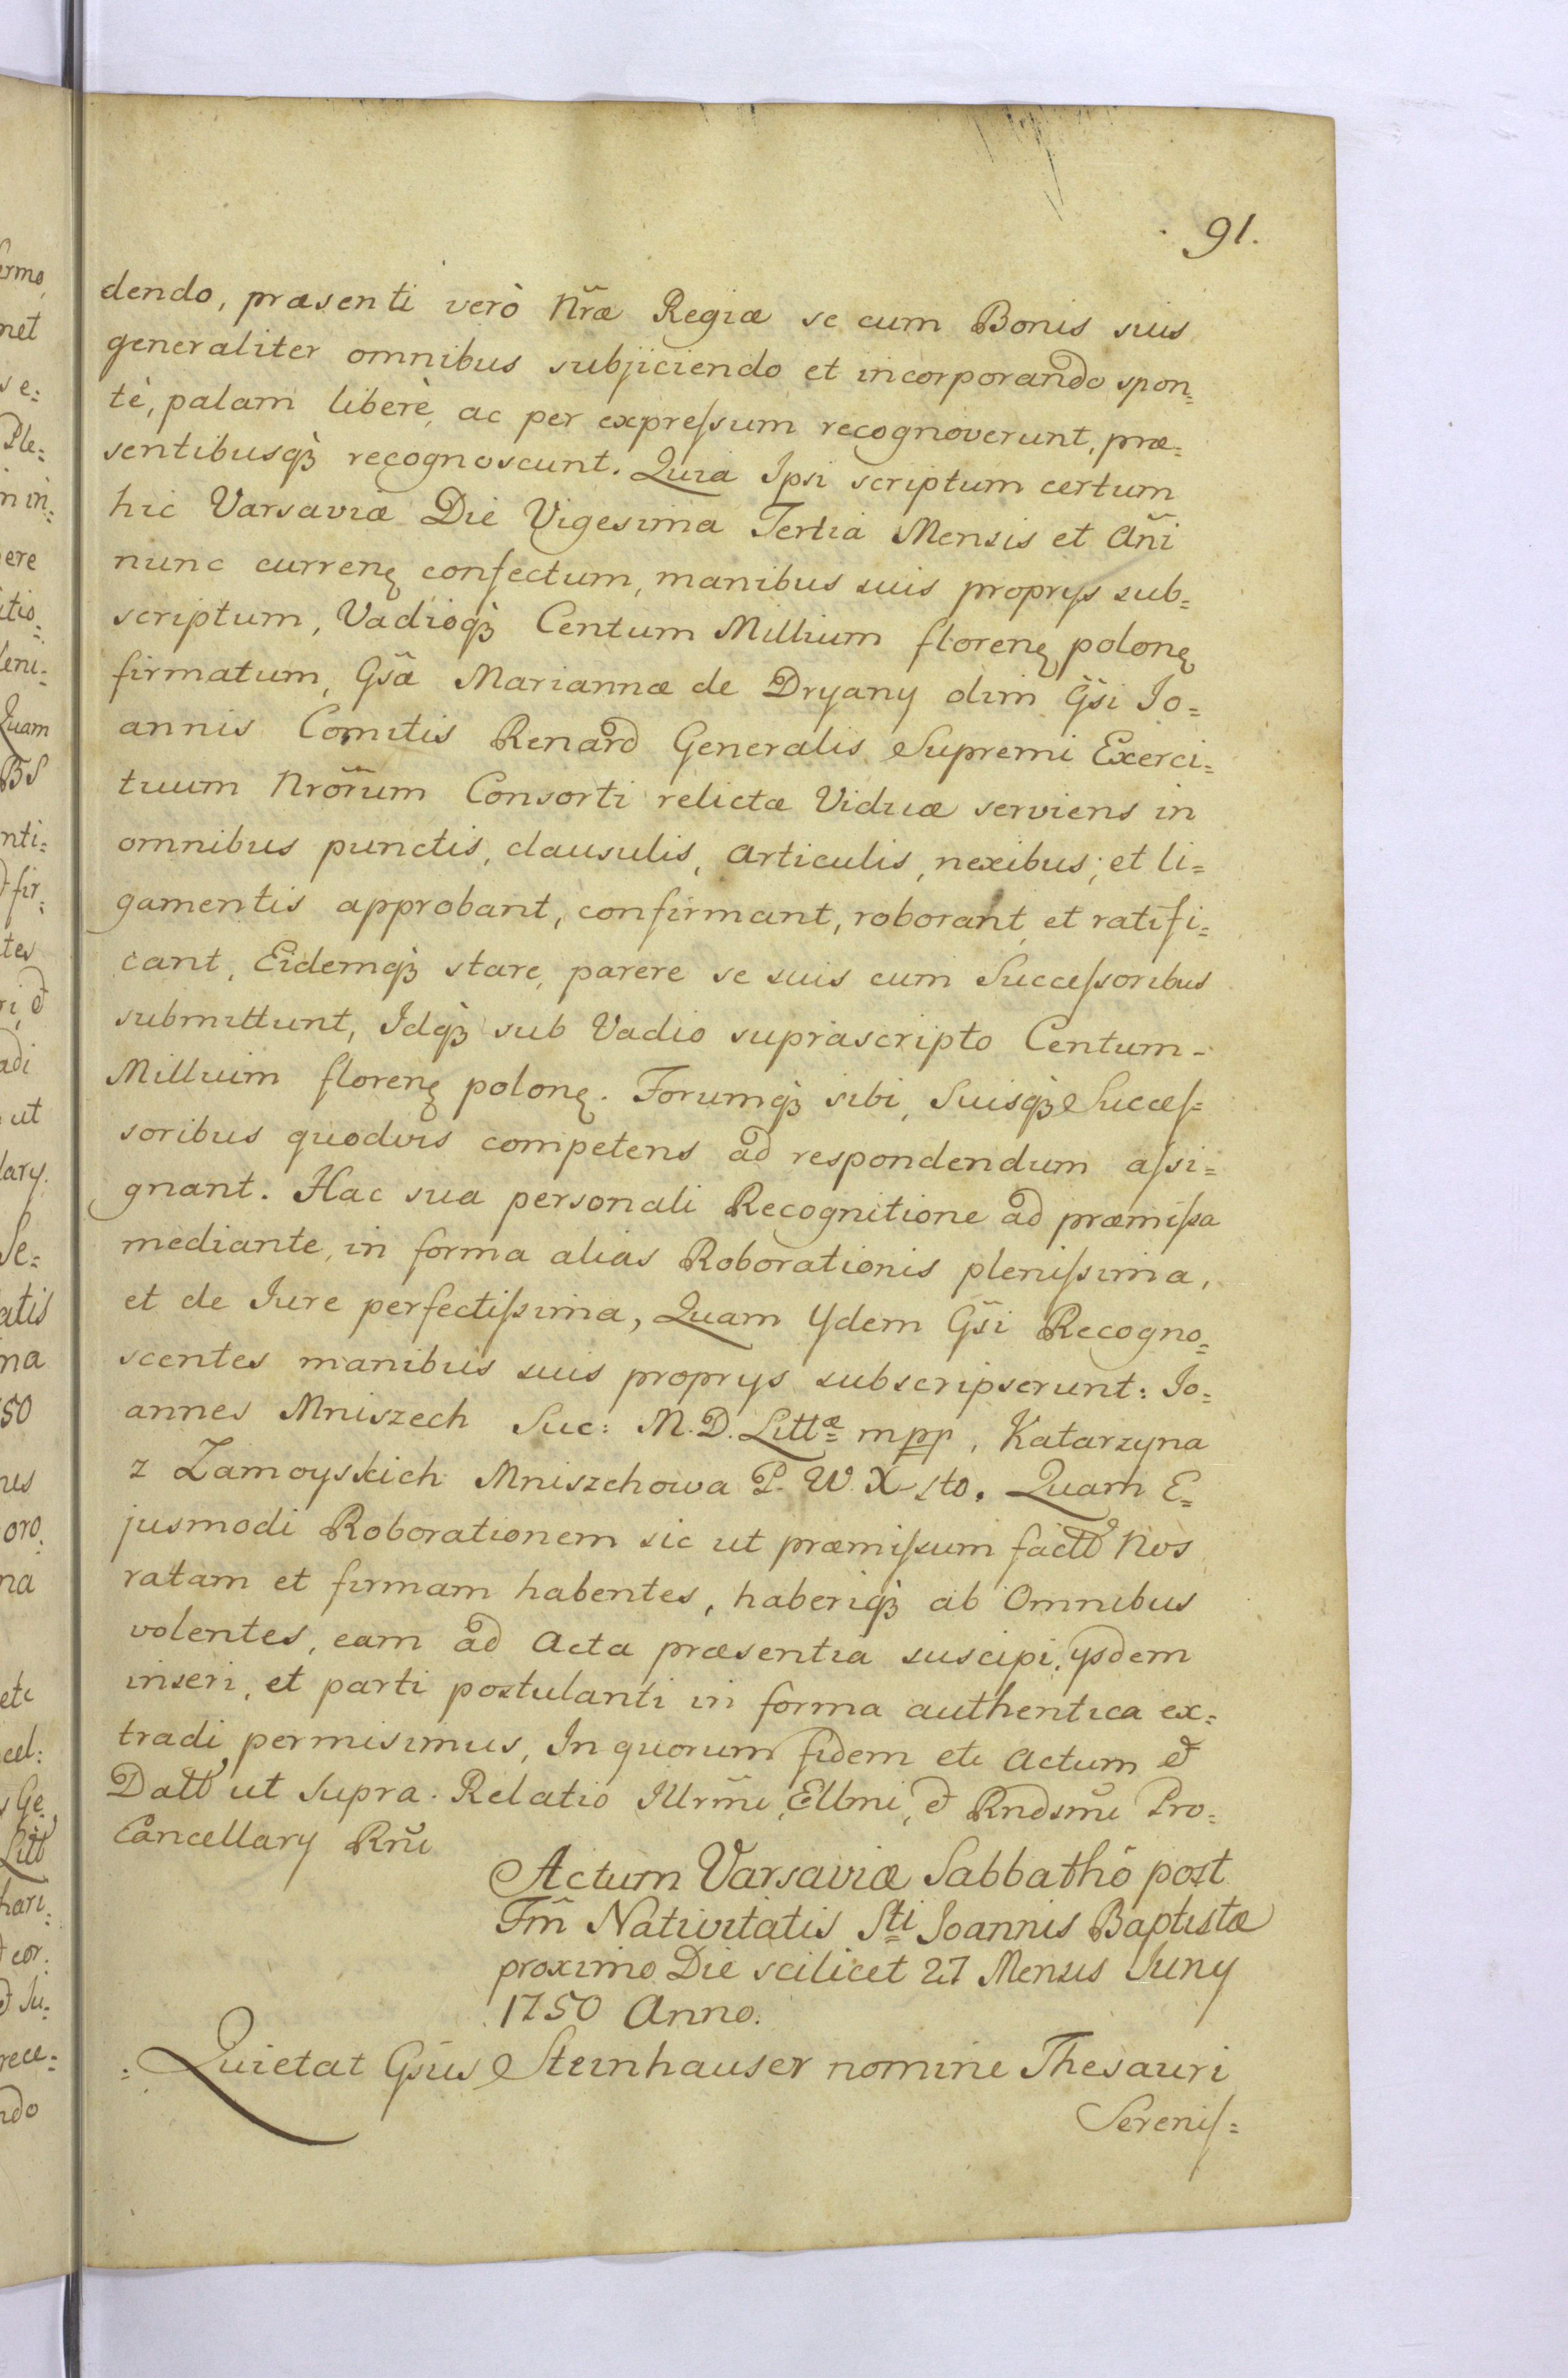 91.
dendo, præsenti verò Nr̃æ Regiæ se cum Bonis suis
generaliter omnibus subjiciendo et incorporando spon=
tè, palam liberè, ac per expreſsum recognoverunt, præ=
sentibusqꝫ recognoscunt. Quia Ipsi scriptum certum
hic Varsaviæ Die Vigesima Tertia Mensis et Añi
nunc currenꝭ confectum, manibus suis proprys sub=
scriptum, Vadioqꝫ Centum Millium florenꝭ polonꝭ
firmatum, Gsã Mariannæ de Dryany olim Gsĩ Jo=
annis Comitis Renard Generalis Supremi Exerci=
tuum Nrõrum Consorti relictæ Viduæ serviens in
omnibus punctis, clausulis, articulis, nexibus; et li=
gamentis approbant, confirmant, roborant et ratifi=
cant, Eidemqꝫ stare, parere se suis cum Succeſsoribus
submittunt, Idqꝫ sub Vadio suprascripto Centum-
Millium florenꝭ polonꝭ. Forumqꝫ sibi, Suisqꝫ Succeſ=
soribus quodvis competens ad respondendum aſsi=
gnant. Hac sua personali Recognitione ad præmiſsa
mediante, in forma alias Roborationis pleniſsima,
et de Jure perfectiſsima, Quam Ydem Gsĩ Recogno=
scentes manibus suis proprys subscripserunt: Jo=
annes Mniszech Suc: M. D. Littæ mpp, Katarzyna
z Zamoyskich Mniszchowa P. W. X Lto. Quam E=
jusmodi Roborationem sic ut præmiſsum factt Nos
ratam et firmam habentes, haberiqꝫ ab Omnibus
volentes, eam ad Acta præsentia suscipi, ysdem
inseri, et parti postulanti in forma authentica ex=
tradi permisimus, In quorum fidem etc Actum et
Datt ut Supra. Relatio Illrm̃i, Ellmi, et Rndsm̃i Pro=
Cancellary Rñi
Actum Varsaviæ Sabbathô post
Fm̃ Nativitatis Sti Joannis Baptistæ
proximo Die scilicet 27 Mensis Juny
1750 Anno.
Quietat Gsũs Steinhauser nomine Thesauri
Sereniſ=